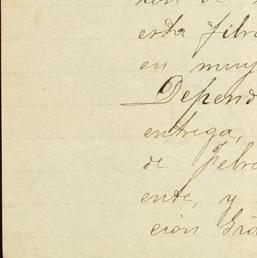 esta fibra
en muy
Depend
entrega,
de Febre
ente, y
cion Gra